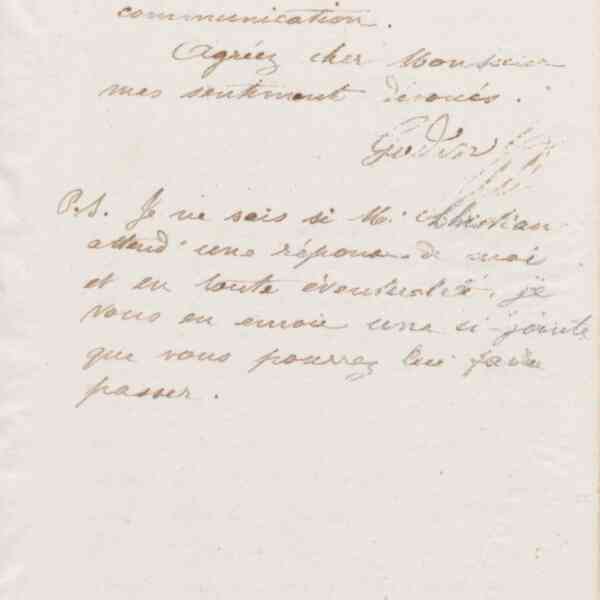 communication.
Agréez cher Monsieur
mes sentiment dévoués.
P.S. Je ne sais si Mr Christian
attend une réponse de moi
et en toute éventualité, je
vous en envoie une ci-jointe
que vous pourrez lui faire
passer.